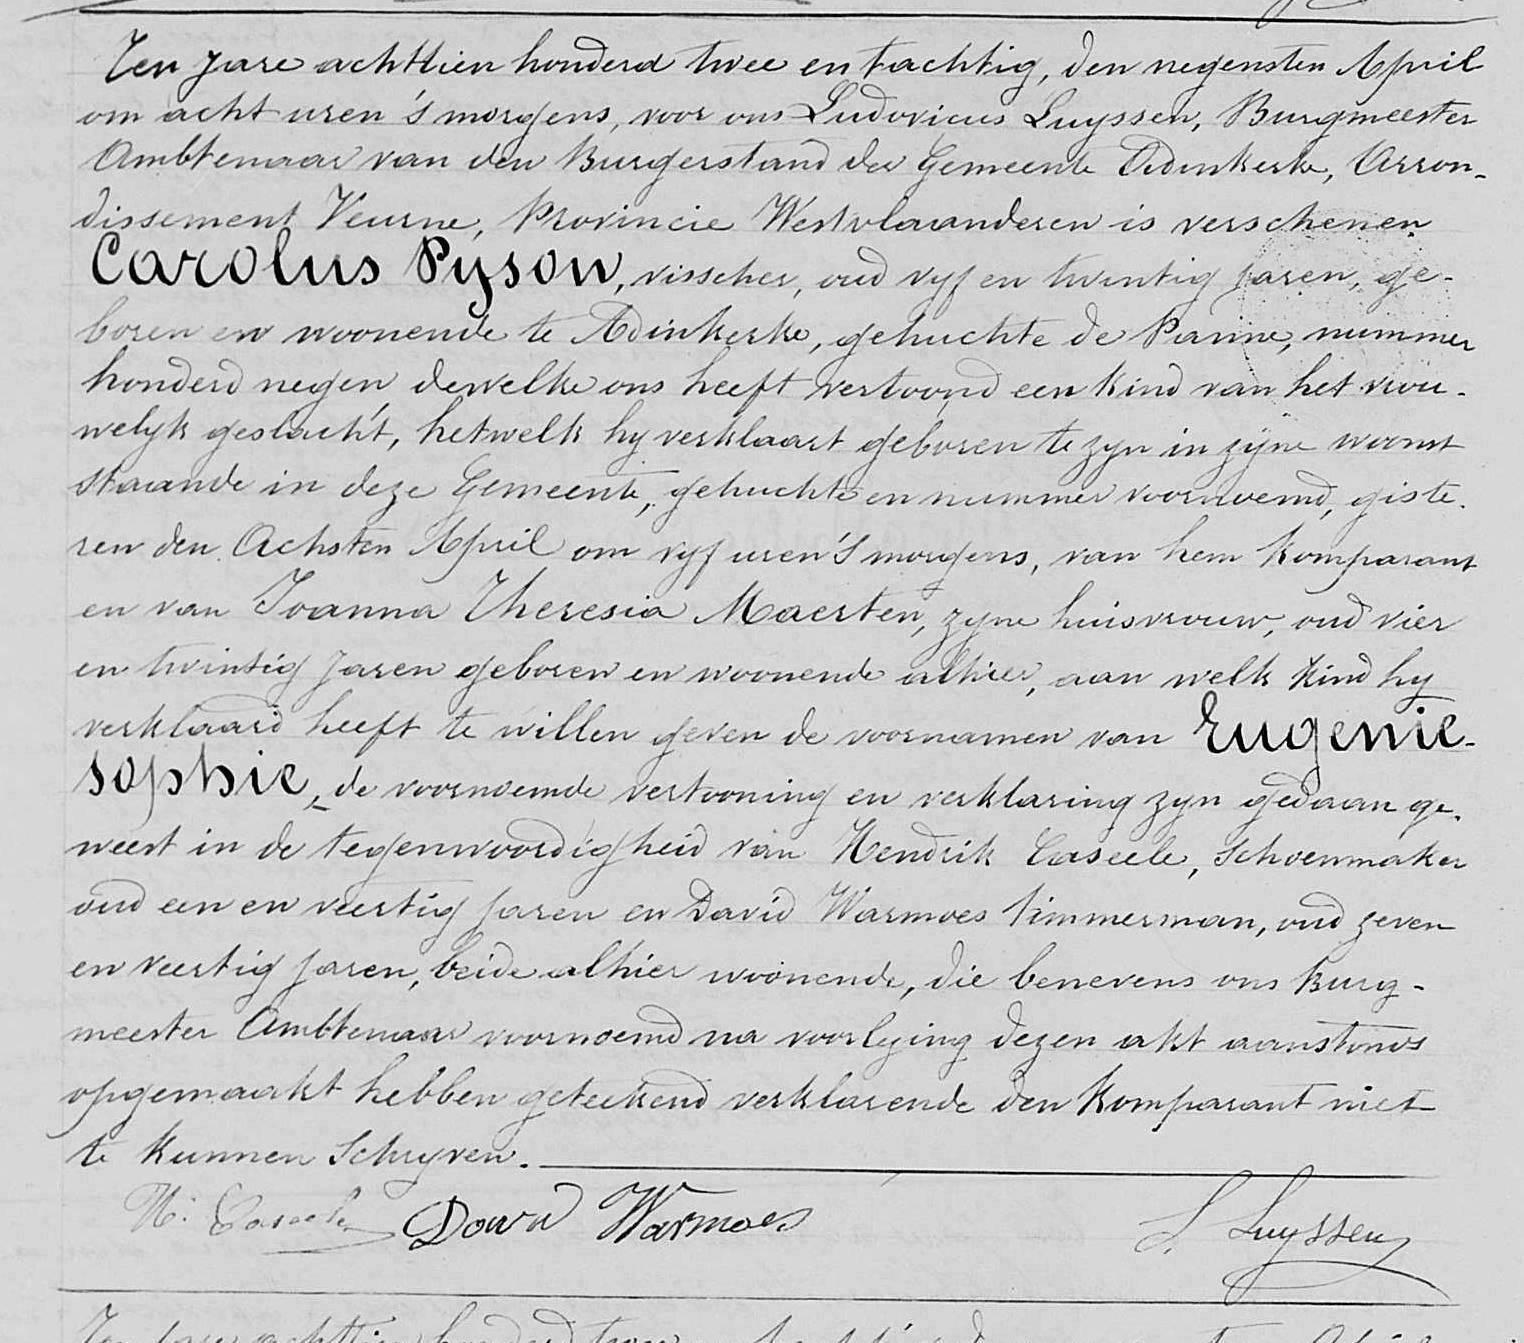 Ten jare achttien honderd twee en tachtig, den negensten April
om acht uren 's morgens, voor ons Ludovicus Luyssen, Burgmeester
Ambtenaar van den Burgerstand der Gemeente Adinkerke, Arron-
dissement Veurne, Provincie Westvlaanderen is verschenen
Carolus Pyson, visscher, oud vyf en twintig jaren, ge-
boren en woonende te Adinkerke, gehuchte de Panne, nummer
honderd negen, dewelke ons heeft vertoond een kind van het vrou-
welyk geslacht, hetwelk hy verklaart geboren te zyn in zyne woonst
staande in deze Gemeente, gehuchte en nummer voornoemd, giste-
ren den Achsten April om vyf uren 's morgens, van hem komparant
en van Joanna Theresia Maerten, zyne huisvrouw, oud vier
en twintig jaren geboren en woonende alhier, aan welk kind hy
verklaard heeft te willen geven de voornamen van Eugenie-
Sophie, de voornoemde vertooning en verklaring zyn gedaan ge-
weest in de tegenwoordigheid van Hendrik Caseele, schoenmaker
oud een en veertig jaren en David Warmoes timmerman, oud zeven
en veertig jaren, beide alhier woonende, die benevens ons Burg-
meester Ambtenaar voornoemd na voorlezing dezen akt aanstonds
opgemaakt hebben geteekend verklarende den komparant niet
te kunnen schryven.
H. Caseele David Warmoes L. Luyssen